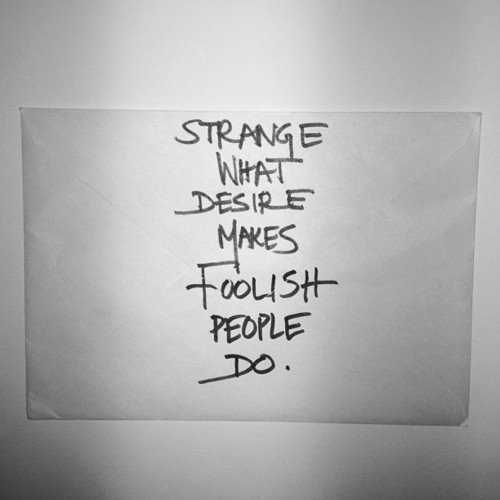 STRANGE
WHAT
DESIRE
MAKES
FOOLISH
PEOPLE
DO.